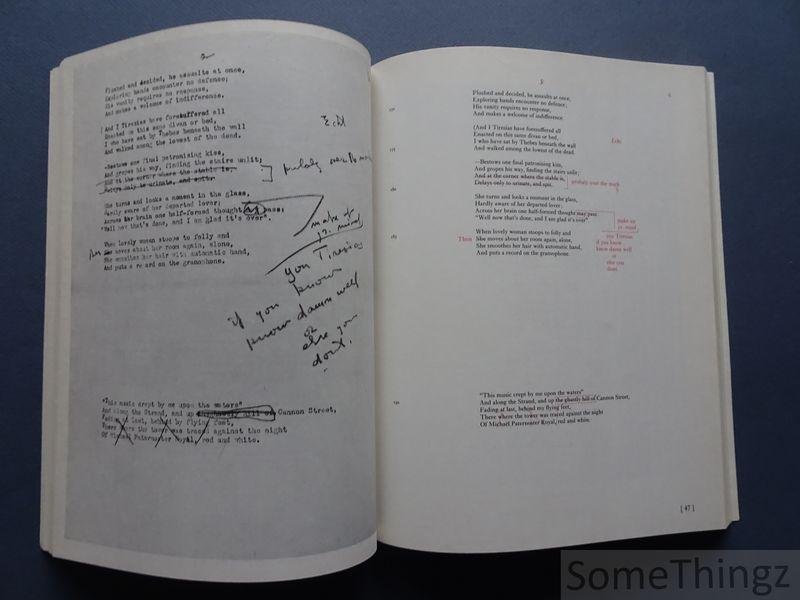 Flushed and decided, he assaults at once,
Exploring hands encounter no defence;
His vanity requires no response,
And makes a welcome of indifference.
(And I Tiresias have foresuffered all
Enacted on this same divan or bed,
I who have sat by Thebes beneath the wall
And walked among the lowest of the dead.
Echt
—Bestows one final patronising kiss,
And gropes his way, finding the stairs unlit;
And at the corner where the stable is,
Delays only to urinate, and spit.
She turns and looks a moment in the glass,
Hardly aware of her departed lover;
Across her brain one half-formed thought may pass:
"Well now that's done, and I am glad it's over".
make up
yr. mind
When lovely woman stoops to folly and
She moves about her room again, alone,
She smoothes her hair with automatic hand,
And puts a record on the gramophone.
you Tiresias
if you know
know damn well
or
else you
dont.
"This music crept by me upon the waters"
And along the Strand, and up the ghastly hill of Cannon Street,
Fading at last, behind my flying feet,
There where the tower was traced against the night
Of Michael Paternoster Royal, red and white.
Flushed and decided, he assaults at once,
Exploring hands encounter no defence;
His vanity requires no response,
And makes a welcome of indifference.
(And I Tiresias have foresuffered all
Enacted on this same divan or bed,
Echt
I who have sat by Thebes beneath the wall
175
And walked among the lowest of the dead.
—Bestows one final patronising kiss,
And gropes his way, finding the stairs unlit;
And at the corner where the stable is,
Delays only to urinate, and spit.
probaly over the mark
180
She turns and looks a moment in the glass,
Hardly aware of her departed lover;
Across her brain one half-formed thought may pass:
"Well now that's done, and I am glad it's over".
make up
yr. mind
When lovely woman stoops to folly and
185
Then She moves about her room again, alone,
She smoothes her hair with automatic hand,
And puts a record on the gramophone.
you Tiresias
if you know
know damn well
or
else you
dont.
"This music crept by me upon the waters"
And along the Strand, and up the ghastly hill of Cannon Street,
Fading at last, behind my flying feet,
There where the tower was traced against the night
Of Michael Paternoster Royal, red and white.
[ 47 ]
SomeThingz